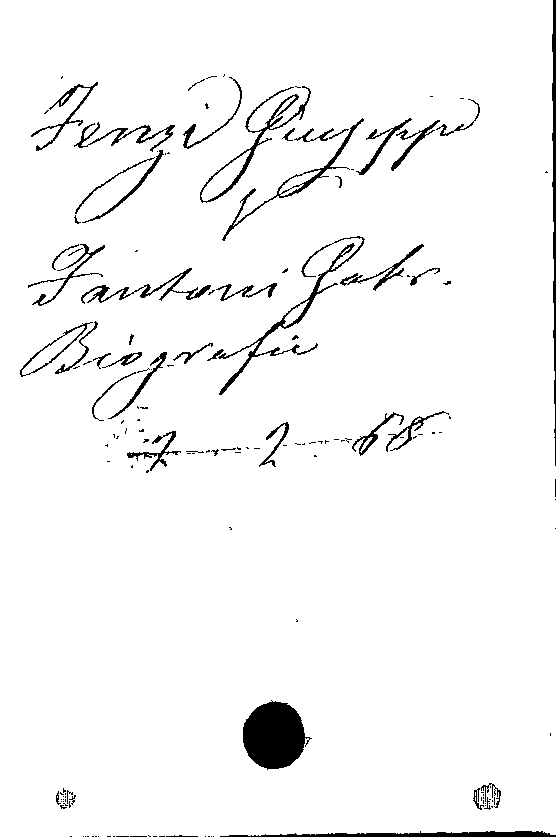 Fenzi Giuseppe
Fantoni Gabr.
Biografia
7 - 2 - 68